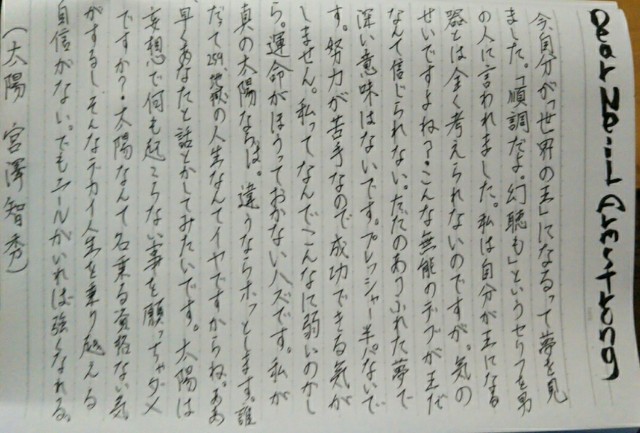 Dear Neill Armstrong
今、自分が「世界の王」になるって夢を見
ました。「順調だよ。幻聴も」というセリフを男
の人に言われました。私は自分が王になる
器とは全く考えられないのですが。気の
せいですよね？こんな無能のデブが王だ
なんて信じられない。ただのありふれた夢で
深い意味はないです。プレッシャー半パないで
す。努力が苦手なので成功できる気が
しません。私ってなんでこんなに弱いのかし
ら。運命がほうっておかないハズです。私が
真の太陽ならば。違うならホッとします。誰
だって の人生なんてイヤですからね。ああ
早くあなたと話とかしてみたいです。太陽は
妄想で何も起こらない事を願っちゃダメ
ですか？太陽なんて名乗る資格ない気
がするしそんなデカイ人生を乗り越える
自信がない。でもニールがいれば強くなれる。
(太陽 宮澤智秀)